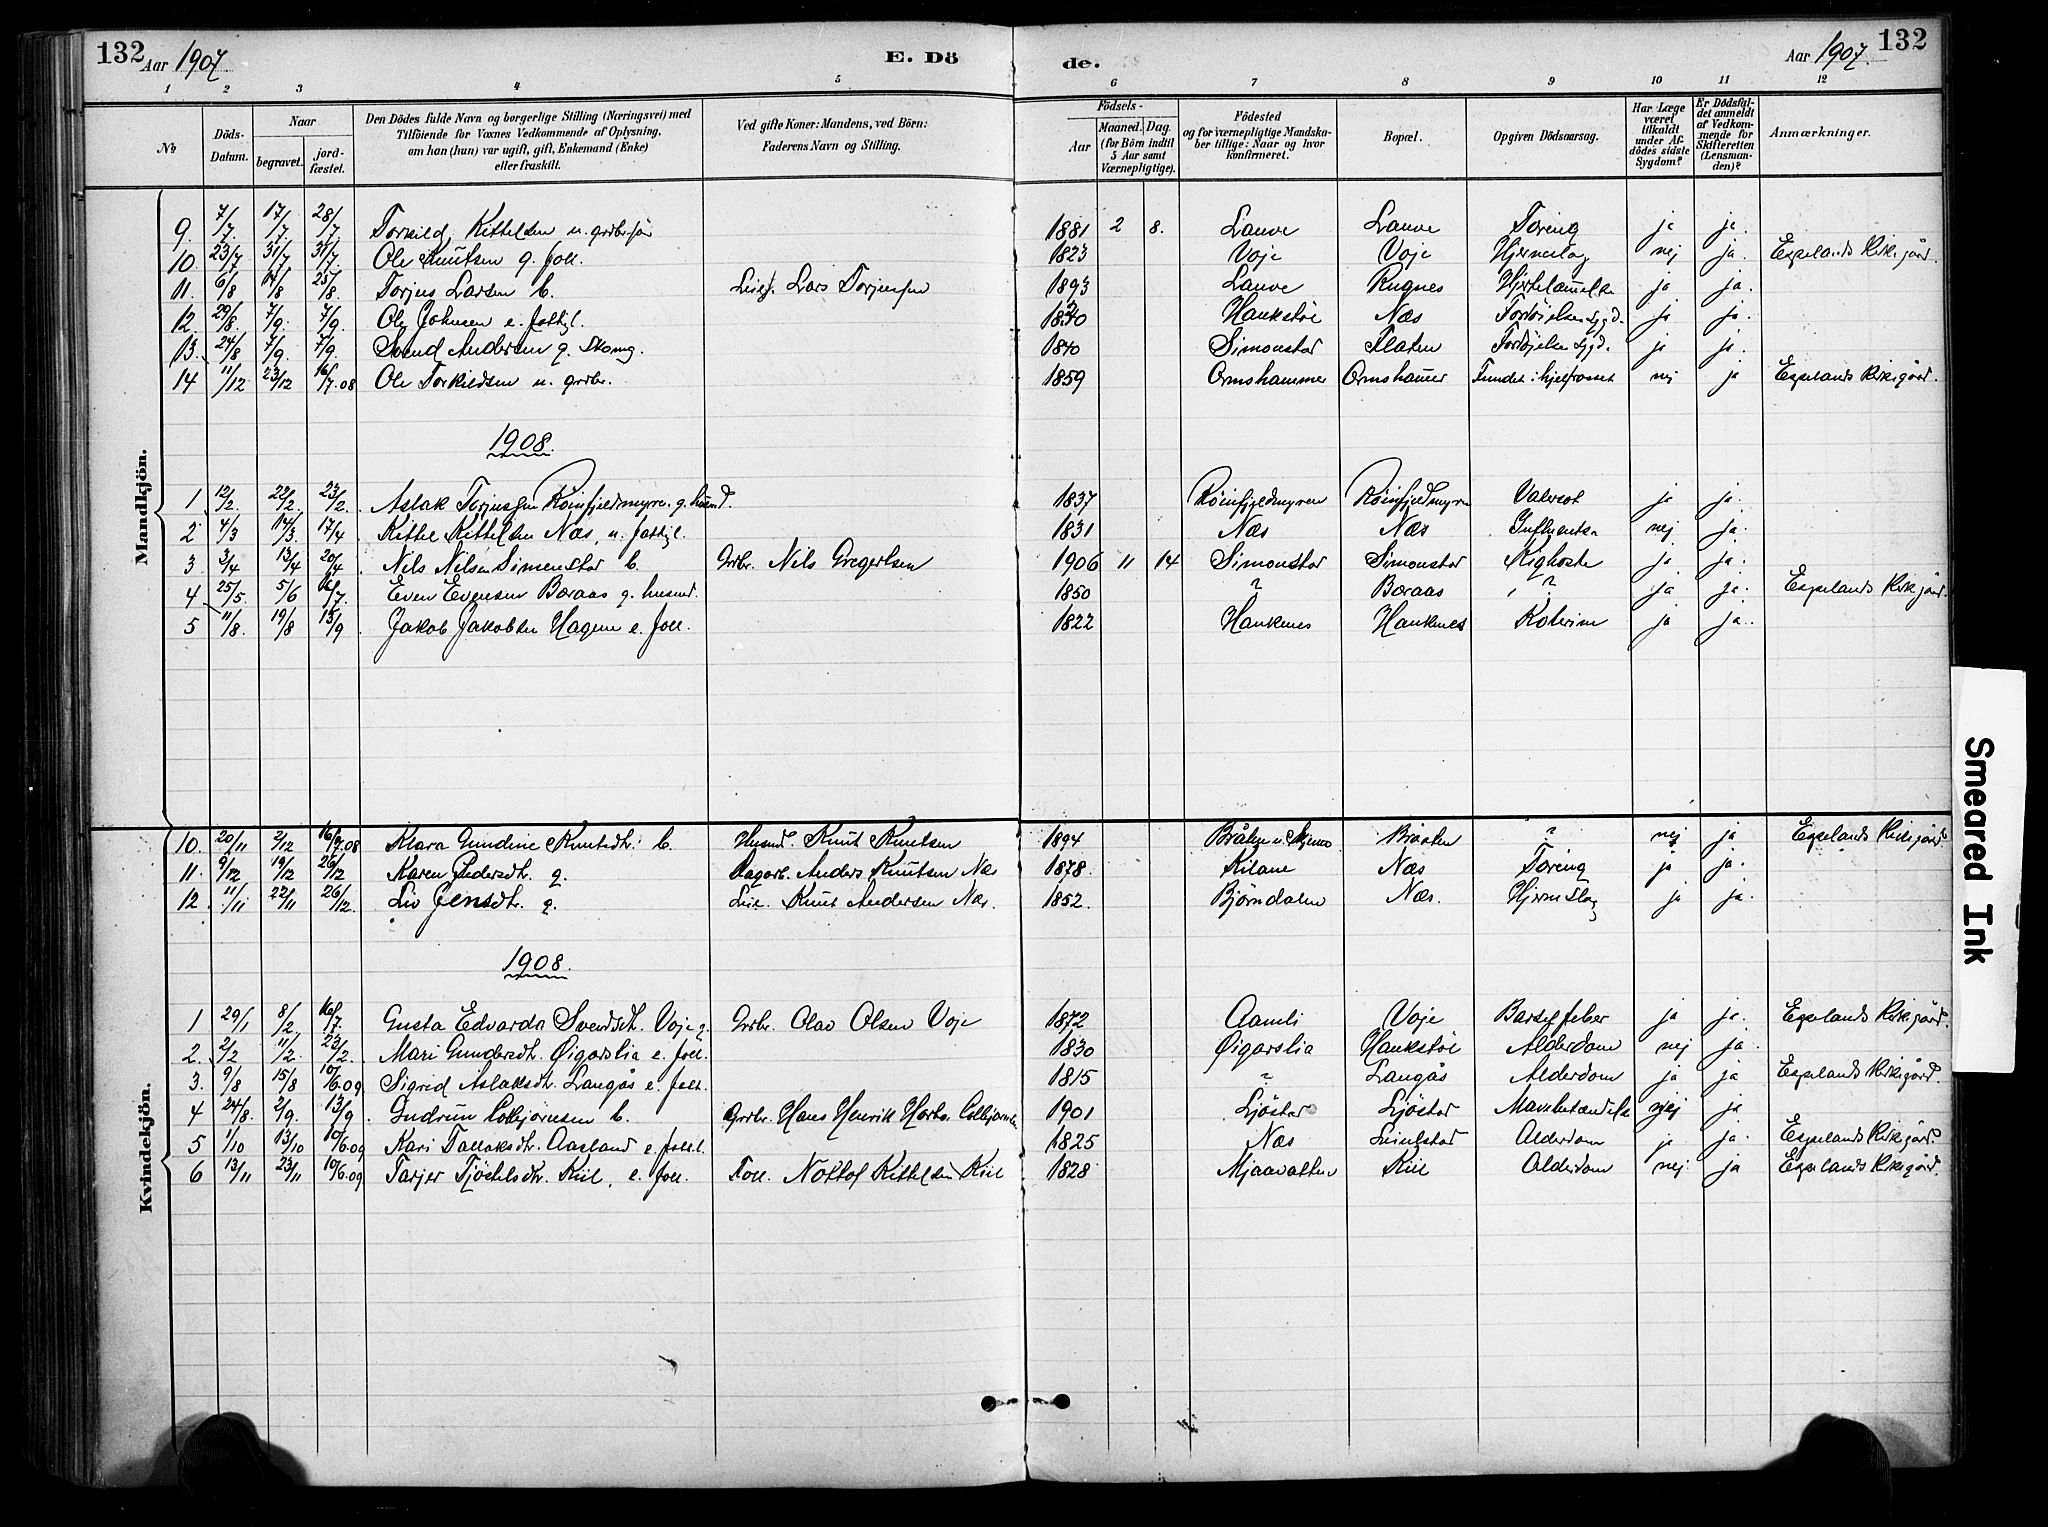 132 Aar 1907. E. Dö de. Aar 1907. 132
1 2 3 4 5 6 7 8 9 10 11 12
No Döds-Datum. Naar begravet. jordfæstet. Den Dödes fulde Navn og borgerlige Stilling (Næringsvei) med Tilföiende for Voxnes Vedkommende af Oplysning, om han (hun) var ugift, gift, Enkemand (Enke) eller fraskilt. Ved gifte Koner: Mandens, ved Börn: Faderens Navn og Stilling. Födsels- Aar Maaned. Dag. (for Börn indtil 5 Aar samt Værnepligtige). Födested og for værnepligtige Mandskaber tillige: Naar og hvor konfirmeret. Bopæl. Opgiven Dödsaarsag. Har Læge været tilkaldt under Afdödes sidste Sygdom? Er Dödsfaldet anmeldt af Vedkommende for Skifteretten (Lensmanden)? Anmærkninger.
Mandkjön.
9. 7/7. 17/7. 28/7 Torkild Kittelsen u. grdbr.sön 1881 2 8. Lauve Lauve Tæring ja ja.
10. 23/7 31/7 31/7. Ole Knutsen g. foll. 1823 Voje Voje Hjerneslag nej ja. Egelands Kirkegård.
11. 6/8 14/8 25/8. Torjus Larsen b. Leil. Lars Torjussen 1893 Lauve Rugnes Hjertelammelse ja ja.
12. 29/8. 7/9. 7/9. Ole Johnsen e. fattigl. 1830 Haukstøl Næs Fordøielses sygd. ja ja.
13. 24/8 7/9. 7/9. Svend Andersen g. Skomg. 1840 Simonstad Flaten Fordøjelses sygd. ja ja.
14 11/12 23/12 16/7.08 Ole Torkildsen u. grdbr. 1859 Ormshammer Ormshammer Fundet ihjelfrosset nej ja Egelands Kirkegård.
1908.
1 12/2. 22/2. 23/2. Aslak Torjussen Roinfjeldmyren g. husmd. 1837 Røinfjeldmyren Røinfjeldmyren ja ja.
2 4/3 14/3. 17/4 Kittel Kittelsen Næs, u. fattigl. 1831 Næs Næs Influentsa nej ja.
3 3/4 13/4 20/4 Nils Nilsen Simonstad b. Grbr. Nils Gregertsen 1906 11 14 Simonstad Simonstad Kighoste ja ja.
4 25/5 5/6 16/7. Even Evensen Boraas g. husmd. 1850 ? Boraas ? ja ja. Egelands Kirkegård.
5 11/8. 19/8 15/9 Jakob Jakobsen Hagen e. foll. 1822 Haukenes Haukenes Kolerine ja ja.
Kvindekjön.
10. 20/11 2/12 16/7.08 Klara Gundine Knutsdt. b. Husmd. Knut Knutsen 1894 Bråten Bråten ? nej ja Egelands Kirkegård
11. 9/12 19/12 26/12 Karen Pedersdt. g. Dagarb. Anders Knutsen Næs 1878. Kilane Næs Tæring ja ja.
12. 11/11 22/11 26/12. Liv Jensdt. g. Leil. Knut Andersen Næs. 1852. Bjørndalen Næs. Hjerneslag ja ja.
1908.
1 29/1 8/2 16/7. Gusta Edvarda Svendsdt. Voje g. Grbr. Olav Olsen Voje 1872 Aamli Voje Barselfeber ja ja. Egelands Kirkegård.
2. 2/2 11/2. 23/2. Mari Gundersdt. Øigarslia e. foll. 1830 Øigarslia Haukstøl Alderdom nej ja.
3. 9/8 15/8 10/6.09 Sigrid Aslaksdt. Langås e. foll. 1815 ? Langås Alderdom ja ja Egelands Kirkegård.
4 24/8. 2/9. 13/9 Gudrun Colbjørnsen b. Grbr. Hans Henrik Colbjørnsen 1901 Ljøstad Ljøstad nej ja
5 1/10 13/10 10/6.09 Kari Tallaksdt. Aasland e. foll. 1825 Næs Simonstad Alderdom ja ja. Egelands Kirkegård.
6 13/11 23/11 10/6.09 Tarjer Tjøstelsdt. Kiil, e. foll. Foll. Nottof Kittelsen Kiil 1828 Mjaavatten Kiil Alderdom nej ja Egelands Kirkegård.
Smeared Ink